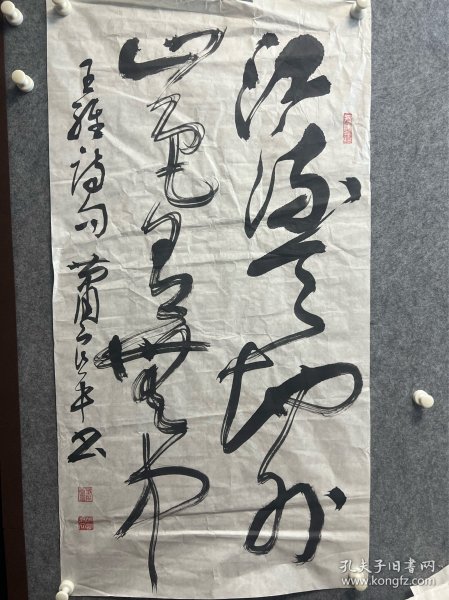 江流天地外
山色有無中
王維詩句 蕭
書
孔夫子旧书网
www.kongfz.com